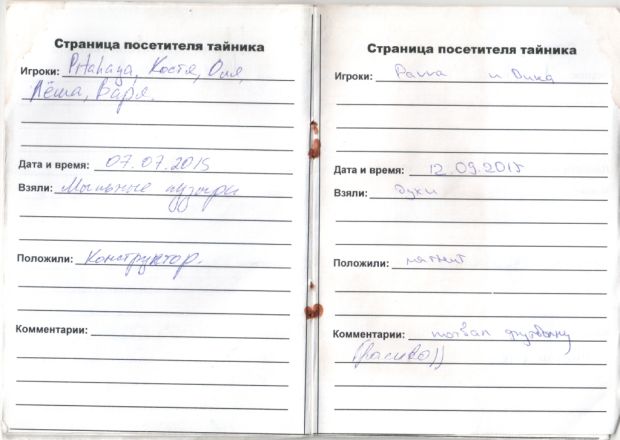 Страница посетителя тайника
Игроки: Pitahaya, Костя, Оля,
Лёша, Варя.
Дата и время: 07.07.2015
Взяли: Мыльные пузыри
Положили: Конструктор.
Комментарии:
Страница посетителя тайника
Игроки: и
Дата и время: 12.09.2015
Взяли: духи
Положили: магнит
Комментарии: порвал футболку
Красиво))